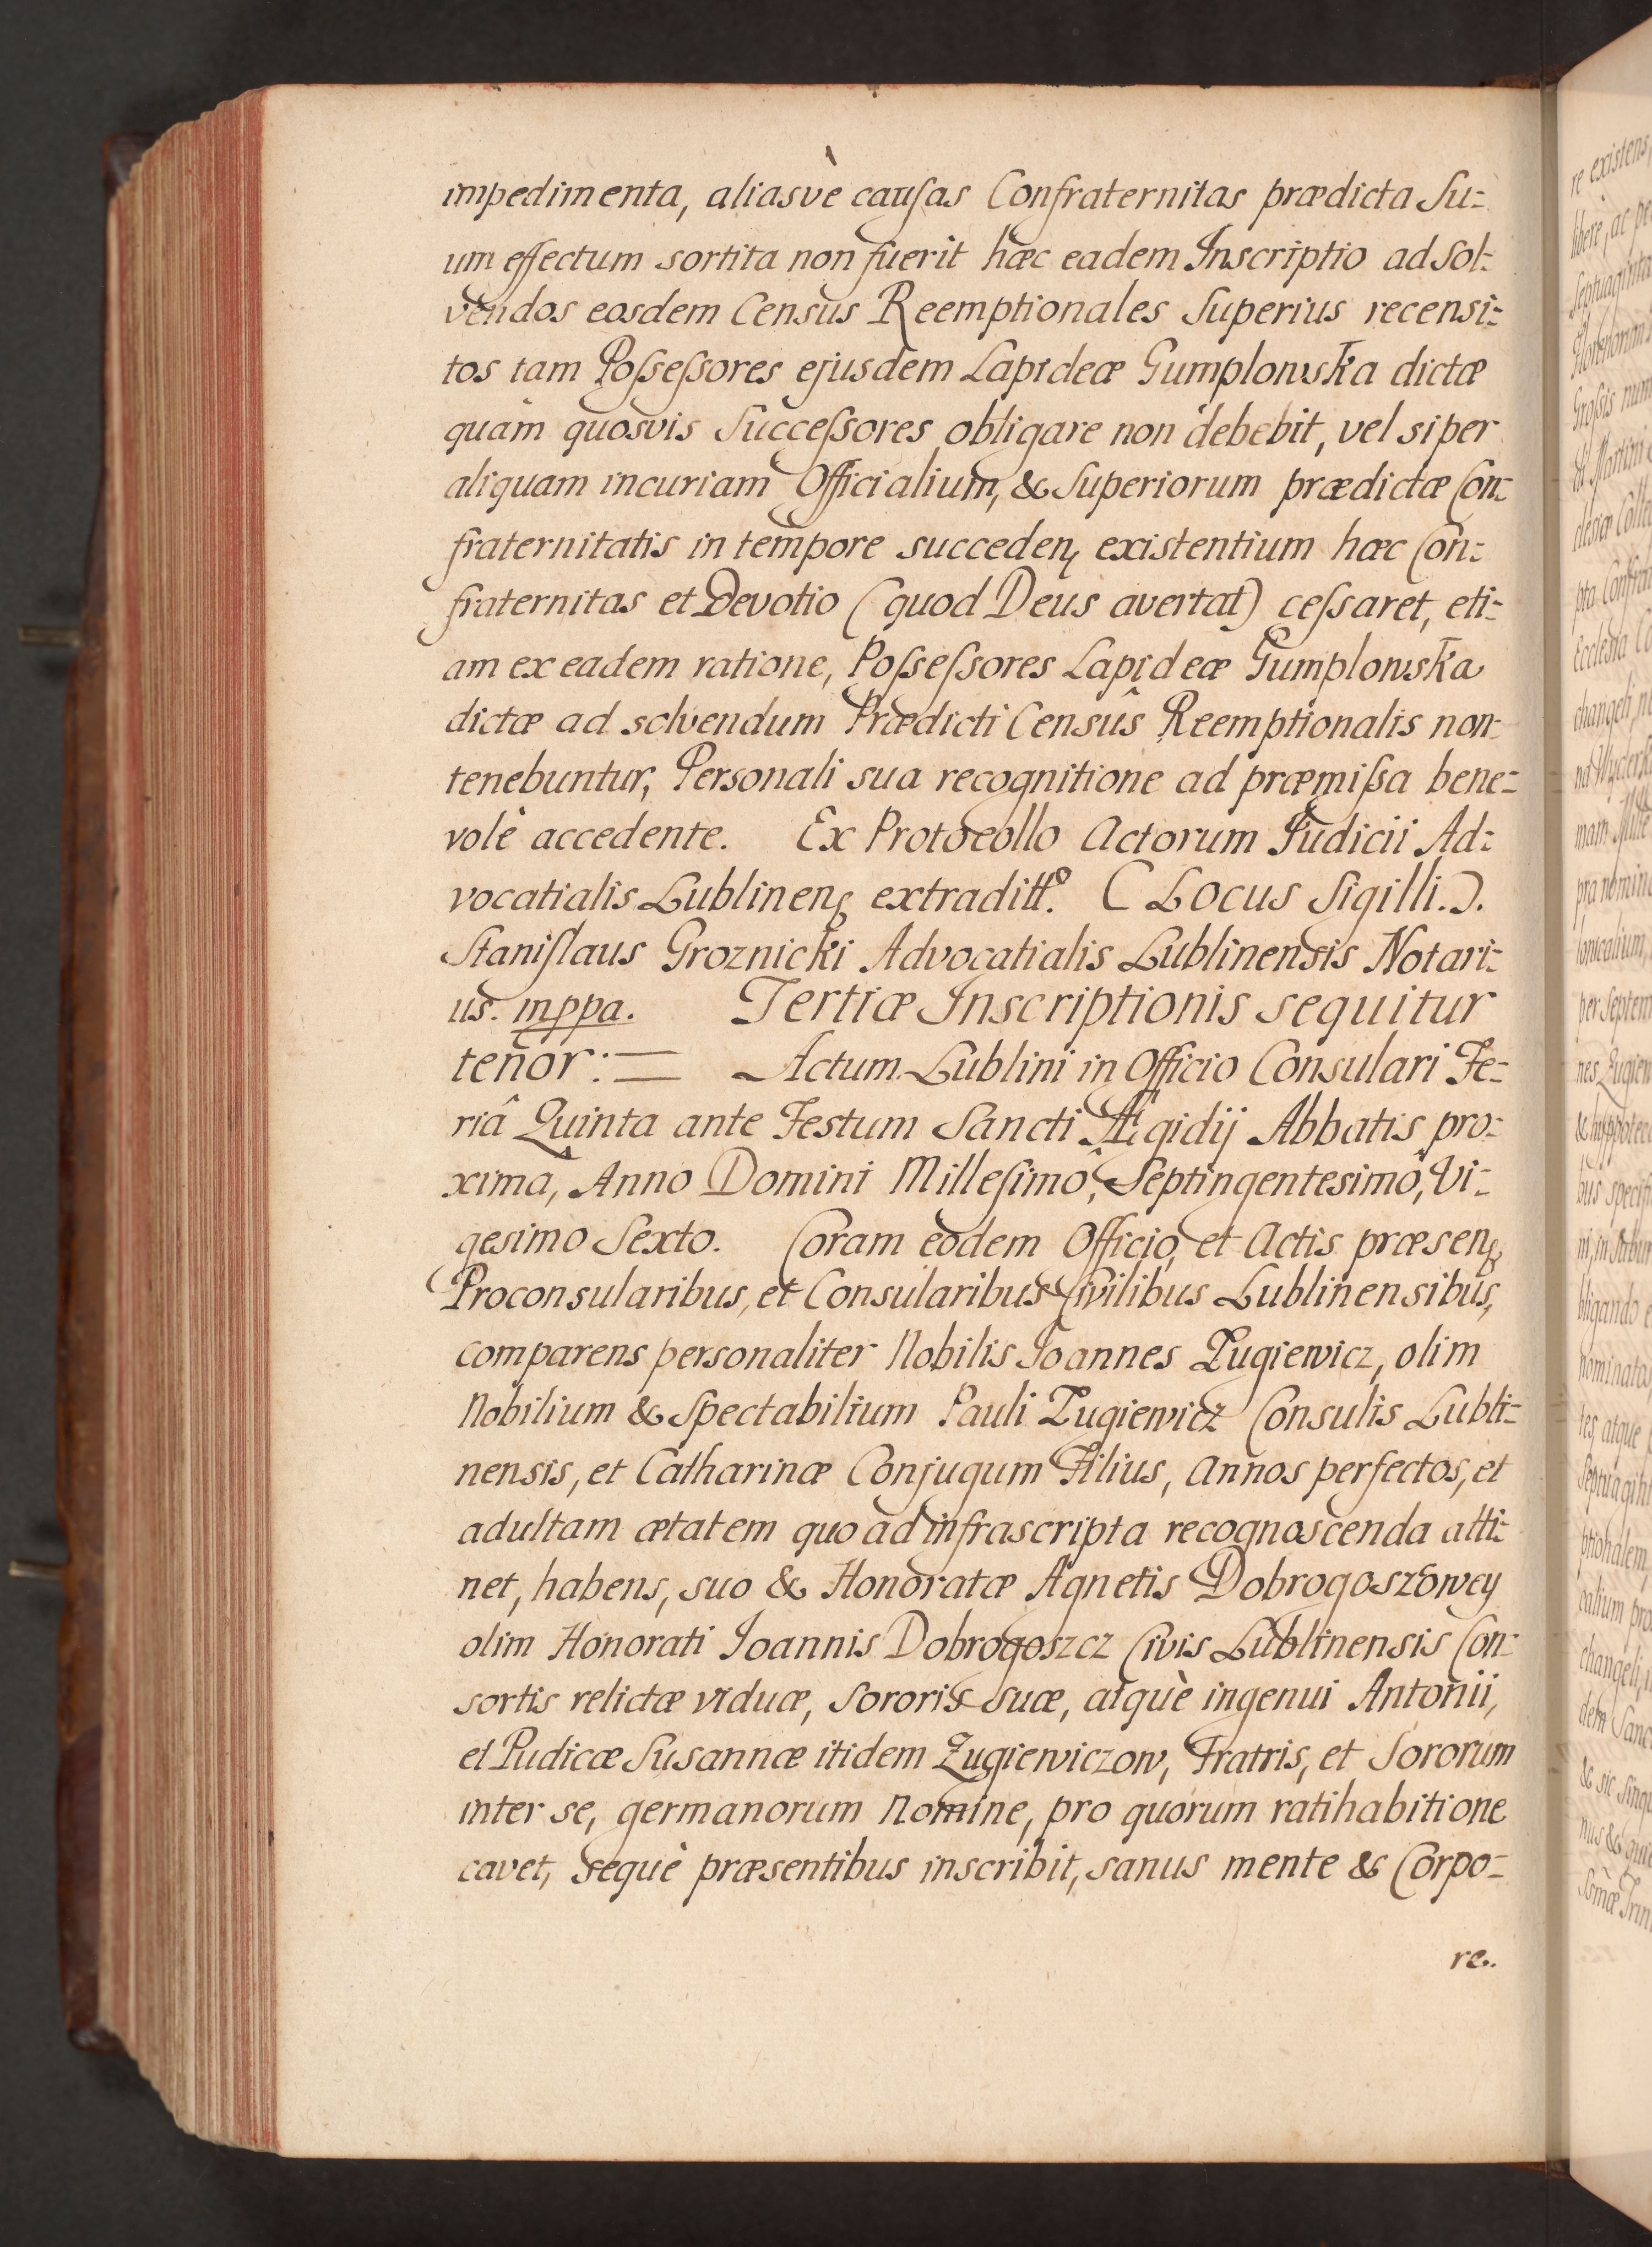 impedimenta, aliasvè causas Confraternitas prædicta Su=
um effectum sortita non fuerit hæc eadem Inscriptio ad Sol=
vendos eosdem Census Reemptionales Superius recensi=
tos tam Possessores ejusdem Lapideæ Gumplowska dictæ
quàm quosvis Successores obligare non debebit, vel si per
aliquam incuriam Officialium, & Superiorum prædictæ Con=
fraternitatis in tempore succeden, existentium hæc Con=
fraternitas et Devotio (quod Deus avertat) cessaret, eti=
am ex eadem ratione, Possessores Lapideæ Gumplowska
dictæ ad solvendum Prædicti Censûs Reemptionalis non
tenebuntur, Personali sua recognitione ad præmissa bene=
volè accedente. Ex Protocollo Actorum Judicii Ad=
vocatialis Lublinenß extraditt.º (Locus Sigilli.).
Stanislaus Groznicki Advocatialis Lublinensis Notari=
us. mppa. Tertiæ Inscriptionis sequitur
tenor: — Actum Lublini in Officio Consulari Fe=
riâ Quinta ante Festum Sancti Ægidij Abbatis pro=
xima, Anno Domini Millesimô, Septingentesimô, Vi=
gesimo Sexto. Coram eodem Officio, et Actis præsenß
Proconsularibus, et Consularibus Civilibus Lublinensibus,
comparens personaliter Nobilis Joannes Zugiewicz, olim
Nobilium & Spectabilium Pauli Zugiewicz Consulis Lubli=
nensis, et Catharinæ Conjugum Filius, Annos perfectos, et
adultam ætatem quo ad infrascripta recognoscenda atti=
net, habens, suo & Honoratæ Agnetis Dobrogoszowey
olim Honorati Joannis Dobrogoszcz Civis Lublinensis Con=
sortis relictæ viduæ, Sororis suæ, atquè ingenui Antonii,
et Pudicæ Susannæ itidem Zugiewiczow, Fratris, et Sororum
inter se, germanorum Nomine, pro quorum ratihabitione
cavet, sequè præsentibus inscribit, sanus mente & Corpo=
re..